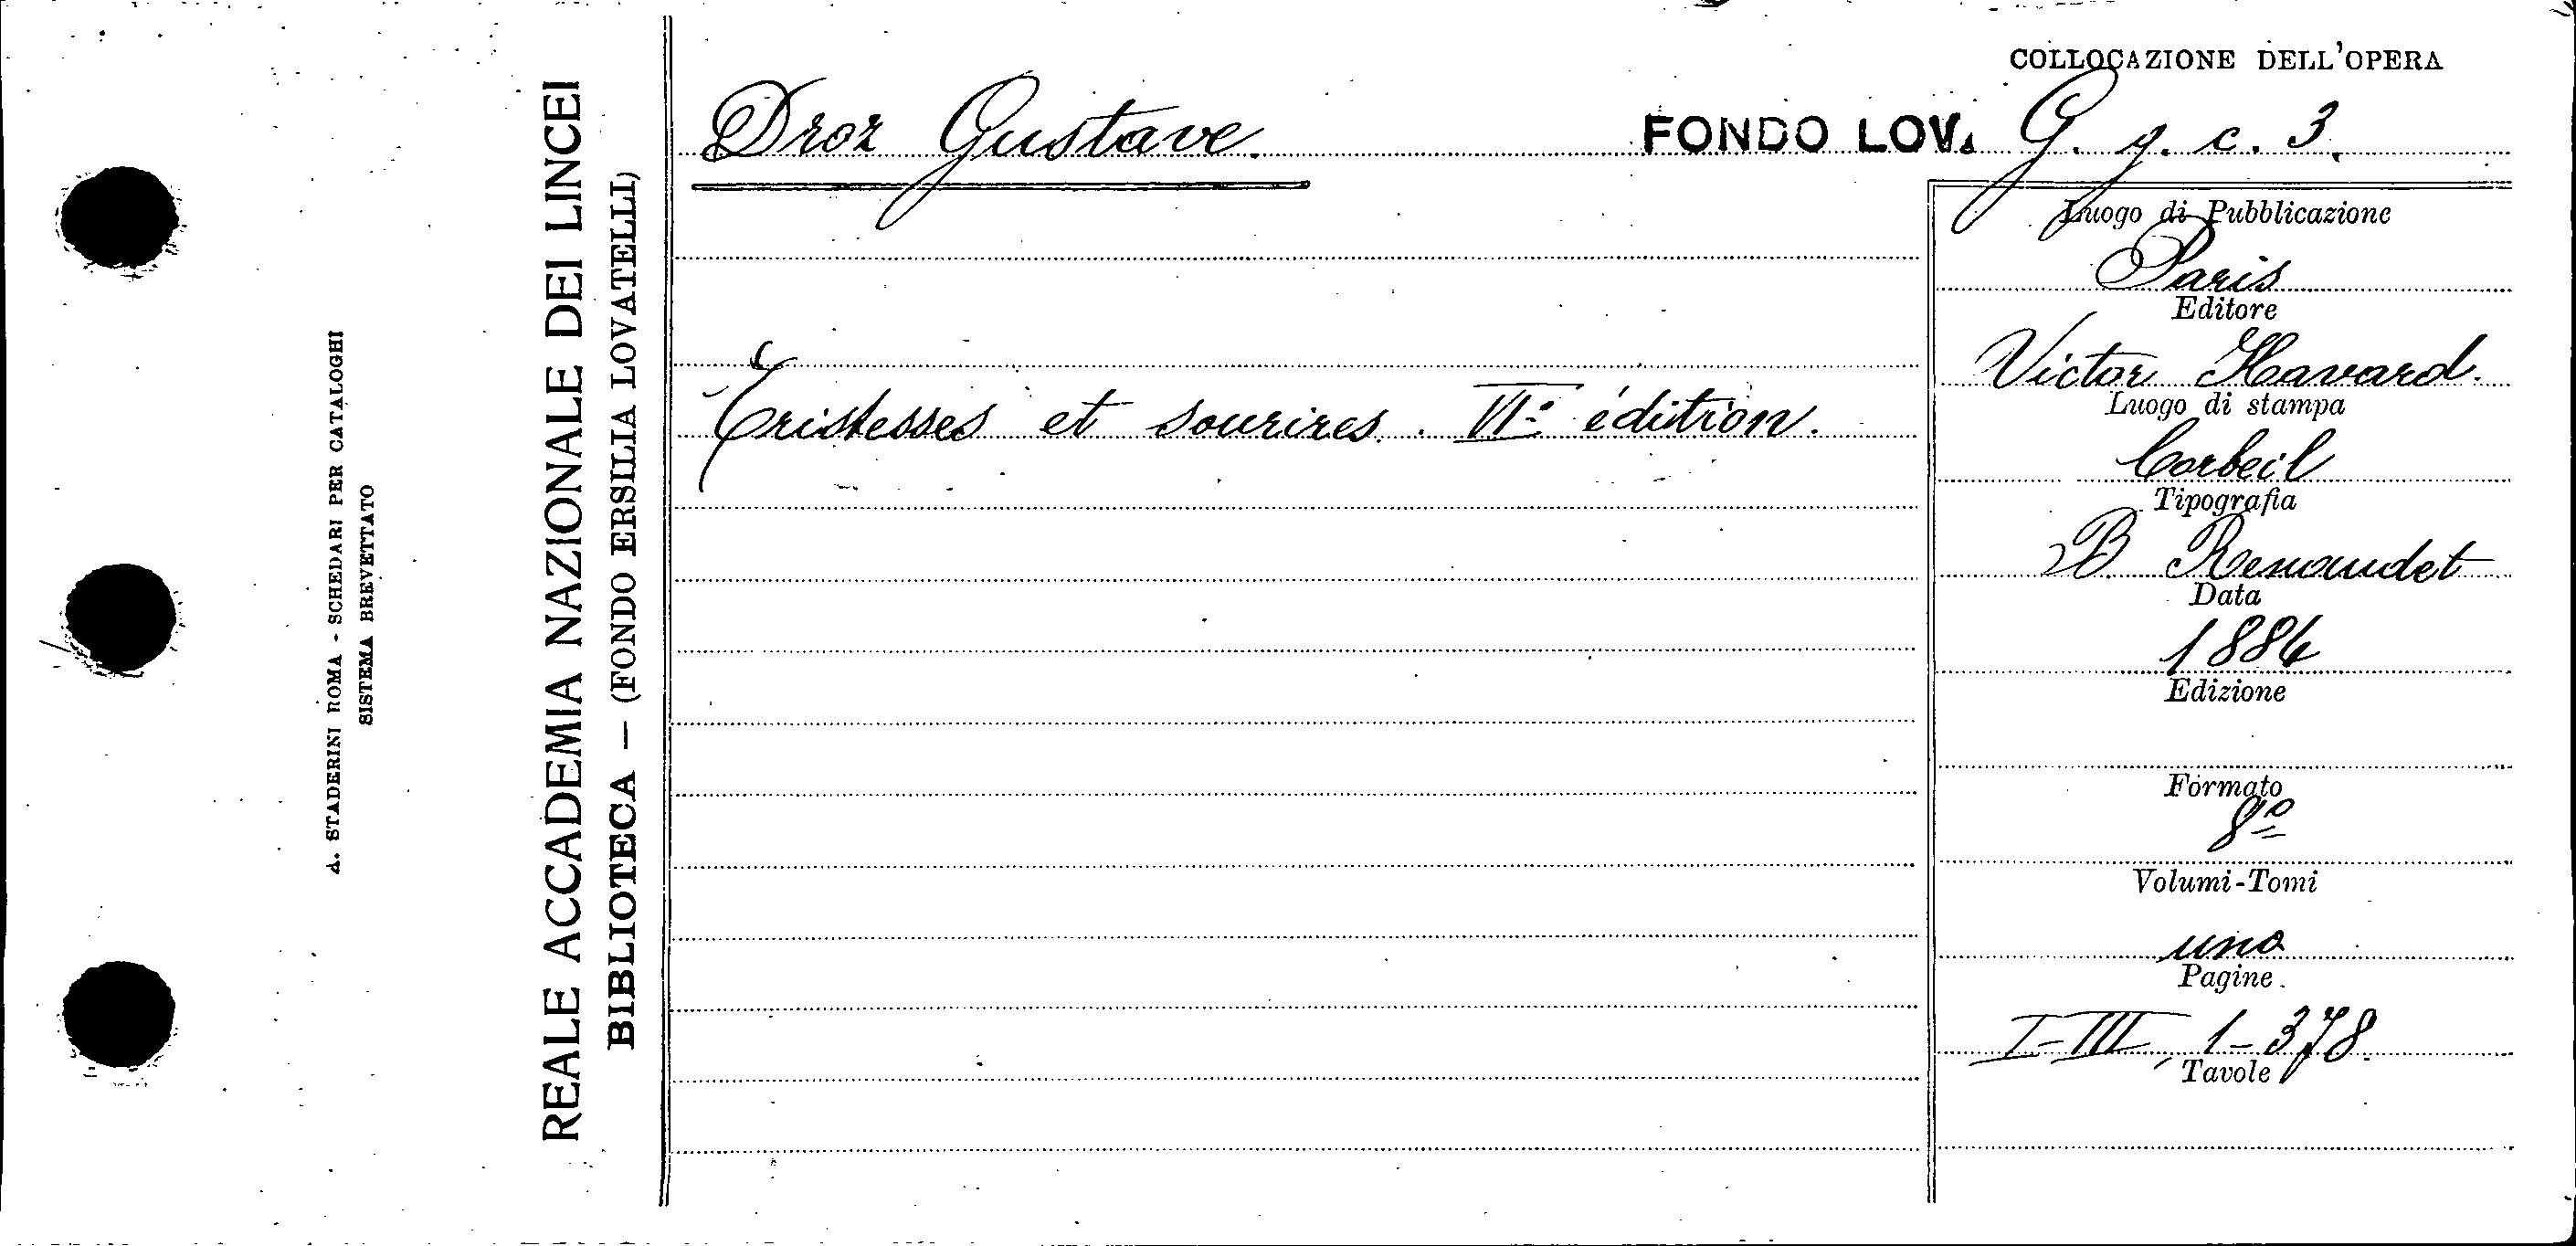 COLLOCAZIONE DELL'OPERA
Droz Gustave.
FONDO LOV. G. g. c. 3.
Tristesses et sourires. VIe édition.
Luogo di Pubblicazione
Paris
Editore
Victor Havard.
Luogo di stampa
Corbeil
Tipografia
B Renaudet
Data
1884
Edizione
Formato
8º
Volumi-Tomi
uno
Pagine.
I-III, 1-378.
Tavole
REALE ACCADEMIA NAZIONALE DEI LINCEI
BIBLIOTECA — (FONDO ERSILIA LOVATELLI)
A. STADERINI ROMA - SCHEDARI PER CATALOGHI
SISTEMA BREVETTATO